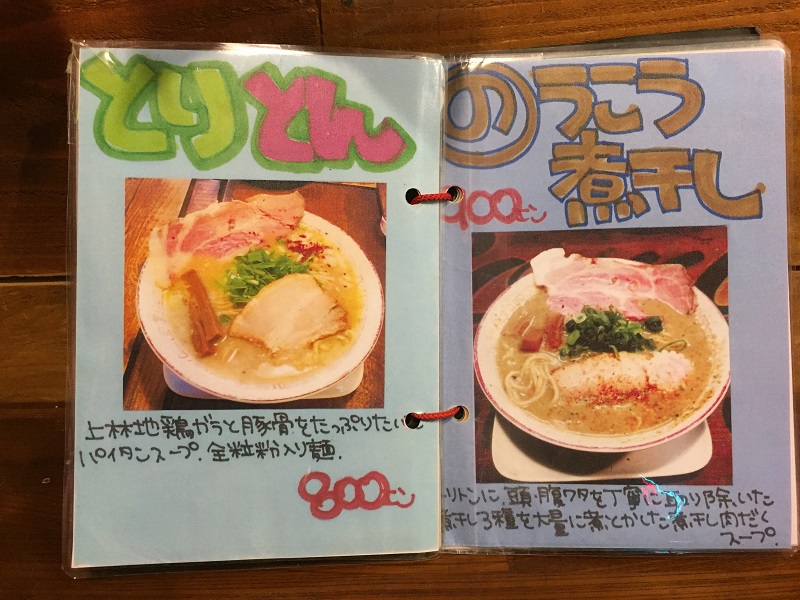 とりとん
上林地鶏ガラと豚骨をたっぷりたい
パイタンスープ.全粒粉入り麺.
800エン
のうこう
煮干し
900エン
リトンに頭・腹ワタを丁寧に取り除いた
煮干し3種を大量に煮とかした煮干し肉だく
スープ.